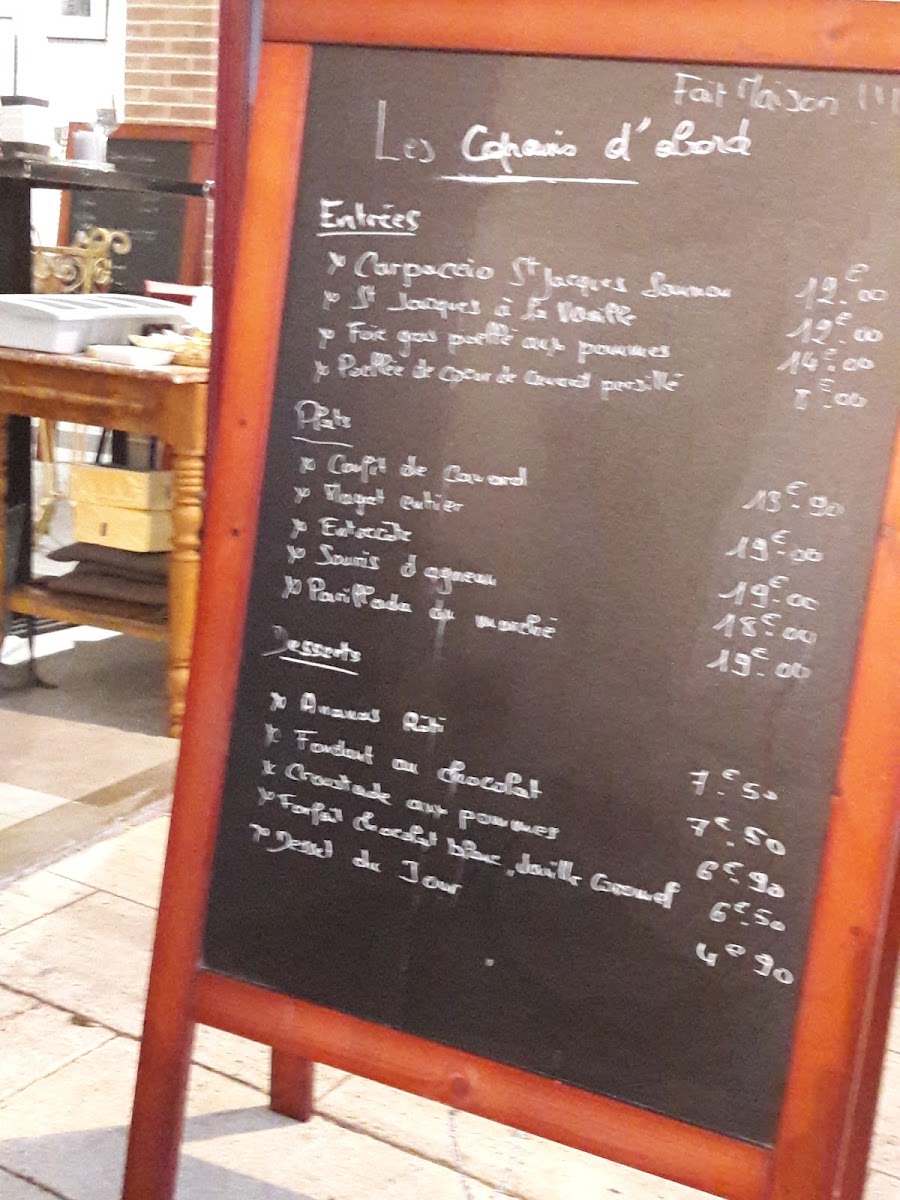 Fait Maison !!!
Les Copains d'abord
Entrées
x Carpaccio St Jacques Saumon 12€.00
x St Jacques à la Vanille 12€.00
x Foie gas poellé aux pommes 14€.00
x Poellée de coeur de canard persillé 8€.00
Plats
x Confit de Canard 13€.90
x Magret entier 19€.00
x Entrecôte 19€.00
x Souris d'agneau 18€.00
x Parillada du marché 19€.00
Desserts
x Ananas Rôti 7€.50
x Fondant au chocolat 7€.50
x Croustade aux pommes 6€.90
x Parfait chocolat blanc, 6€.50
x Dessert du Jour 4€90